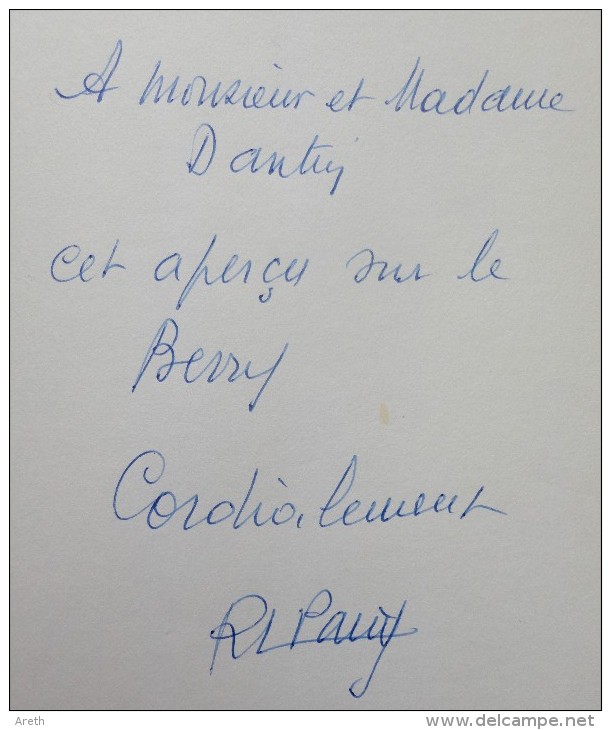 A Monsieur et Madame
cet aperçu sur le
Berry
Cordialement
Areth
www.delcampe.net